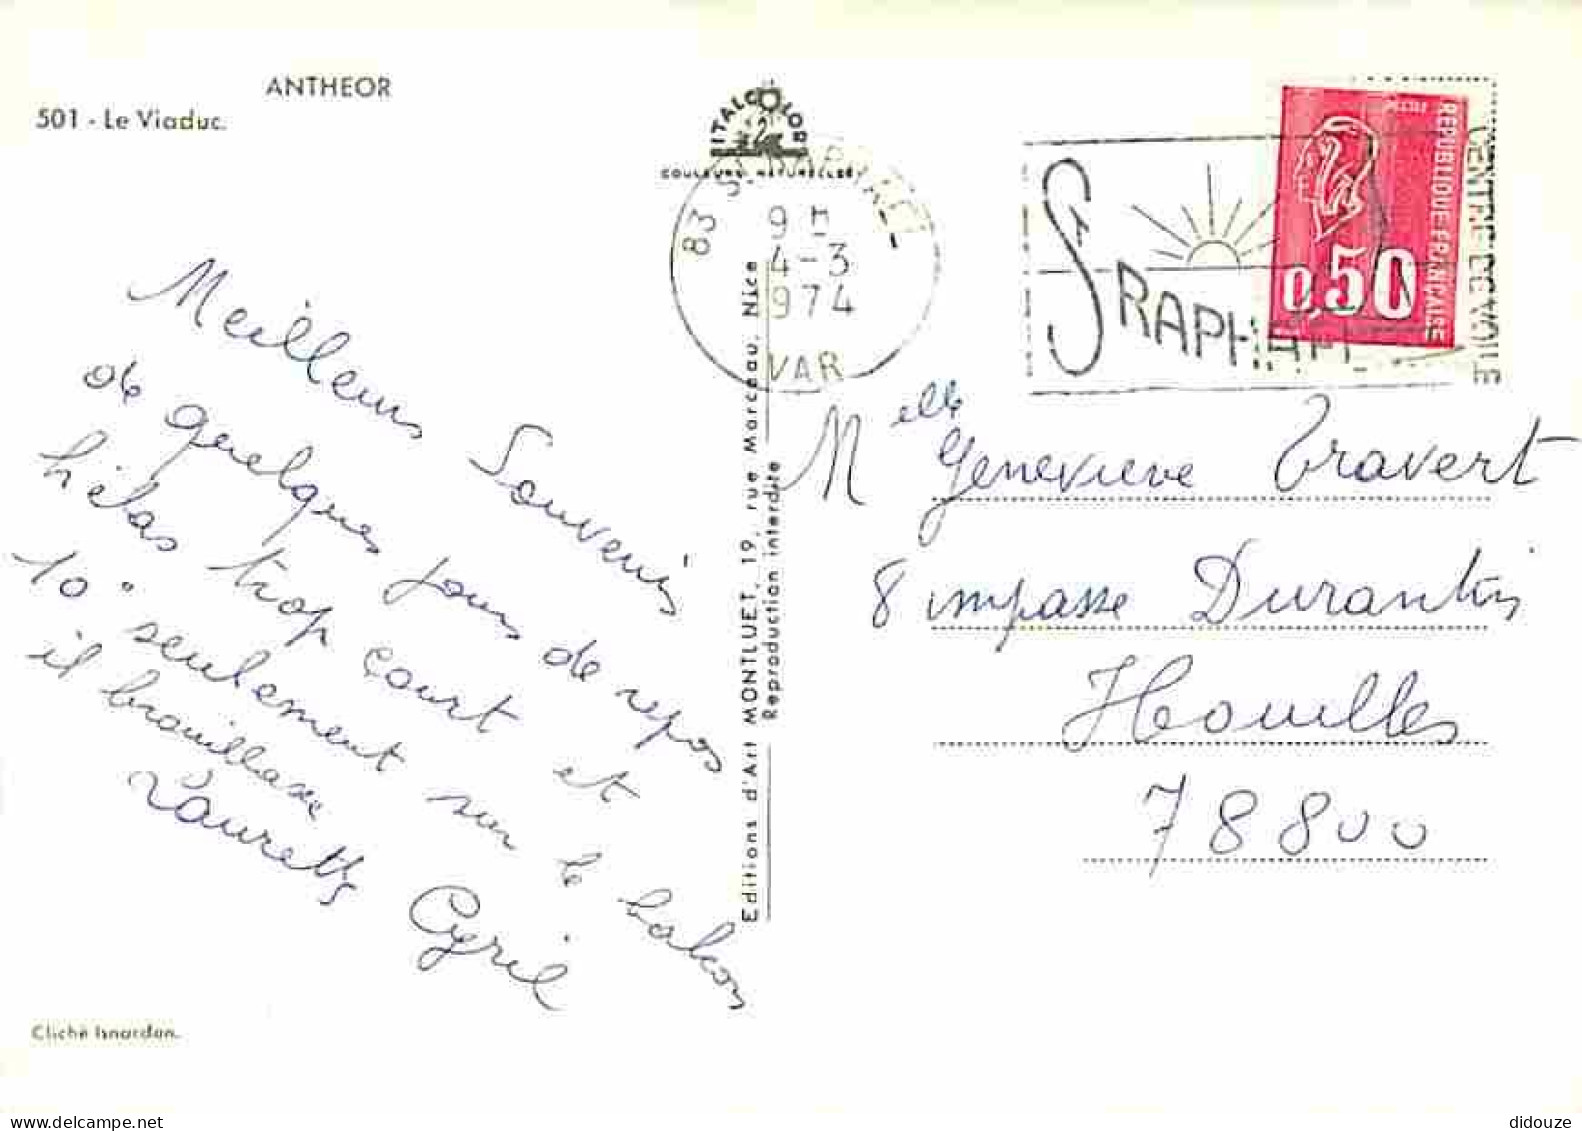 ANTHEOR
501 - Le Viaduc.
ITALCOLOR
COULEURS NATURELLES
83 ST RAPHAEL
9 H
4-3
1974
VAR
ST RAPHAEL
CENTRE DE VOILE
REPUBLIQUE FRANCAISE
0,50
Meilleurs Souvenirs
de quelques jours de repos
hélas trop court et
10° seulement sur le balcon
il brouillasse
Laurette Cyril
Editions d'Art MONTLUET, 19, rue Marceau, Nice
Reproduction interdite
Melle Genevieve Travert
8 impasse Durantin
Houilles
78800
Cliché Isnardon.
didouze